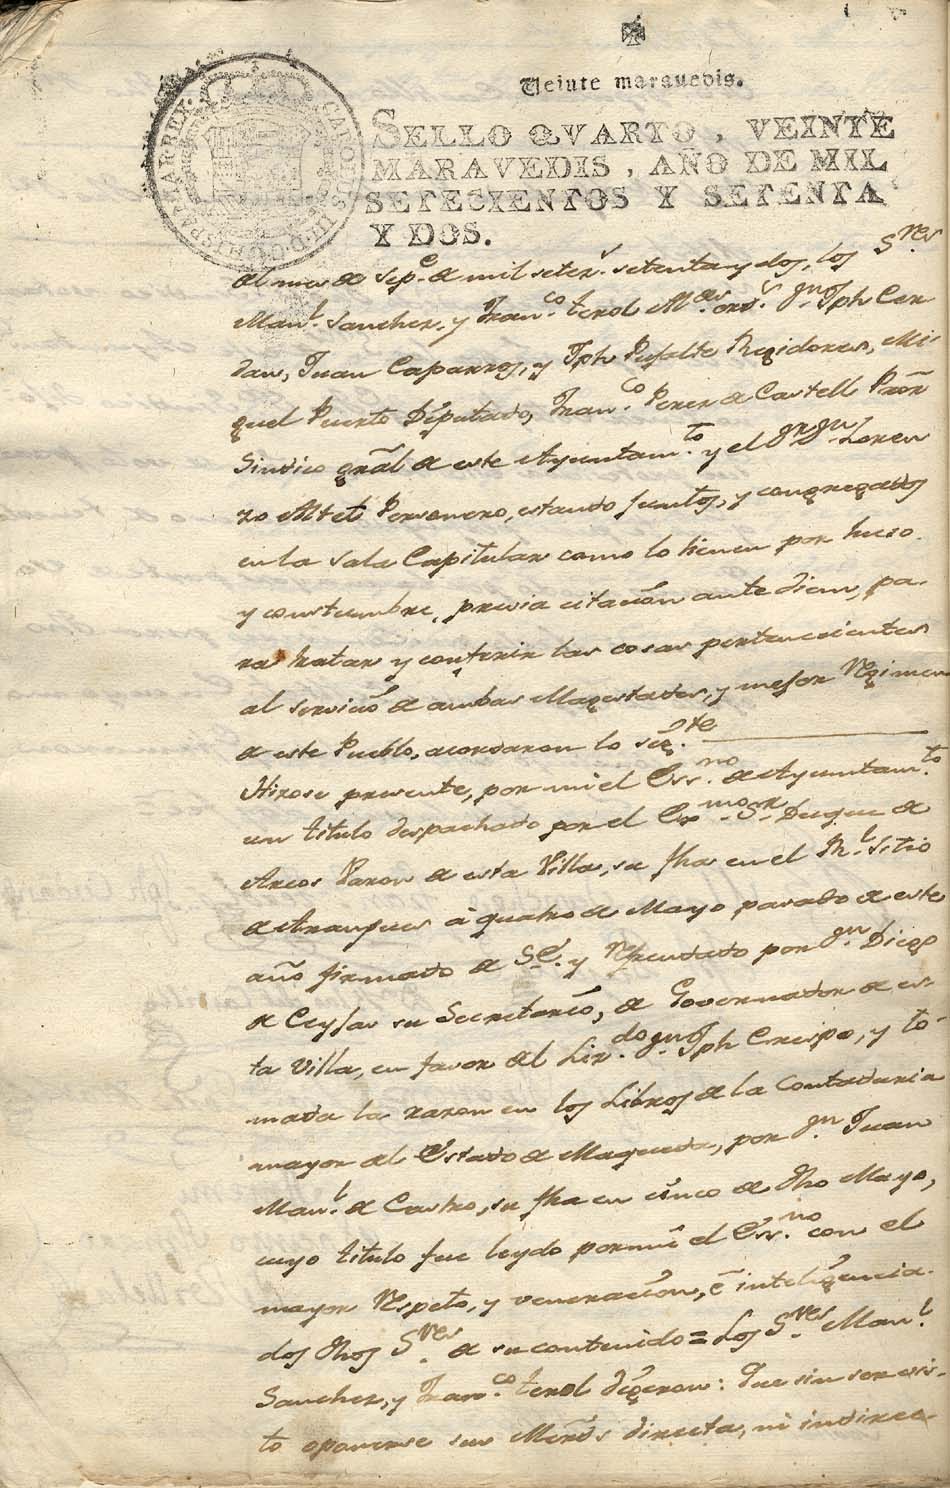 Veinte marauedis.
SELLO QVARTO, VEINTE
MARAVEDIS, AÑO DE MIL
SETECIENTOS Y SETENTA
Y DOS.
CAROLUS III D G HISPANIAR REX
del mes de Sepe. de mil seters. setenta y dos, los Sres
Manl. Sanchez, y Franco. terol Mres. ords. Dn. Jph Cer
dan, Juan Caparros, y Jph Pujalte Regidores, Mi-
guel Puerto Diputado, Franco. Perez de Castell Pror
Sindico gral de este Ayuntamto. y el Dr. Dn. Loren
zo Mtet Personero, estando juntos, y congregados
en la Sala Capitular como lo tienen por huso
y constumbre, previa citacion ante diem, pa-
ra tratar y conferir las cosas pertenecientes
al servicio de ambas Magestades, y mejor Regimen
de este Pueblo, acordaron lo sigte.
Hizose presente, por mi el Essno. de Ayuntamto.
un titulo despachado por el Exmo. Sr. Duque de
Arcos Varon de esta Villa, su fha en el Rl. Sitio
de Aranjuez à quatro de Mayo pasado de este
año firmado de S.E. y Refrendado por Dn. Diego
de Ceyjas su Secretario, de Governador de es-
ta Villa, en favor del Lizdo. Dn. Jph Crespo, y to-
mada la razon en los Libros de la Contaduria
mayor del Estado de Maqueda, por Dn. Juan
Manl. de Castro, su fha en cinco de dho Mayo,
cuyo titulo fue leydo por mi el Essno. con el
mayor Respeto, y veneracion, è inteligencia-
dos dhos Sres. de su contenido = Los Sres. Manl.
Sanchez, y Franco. terol digeron: Que sin ser vis-
to oponerse sus Mrds directa, ni indirec-